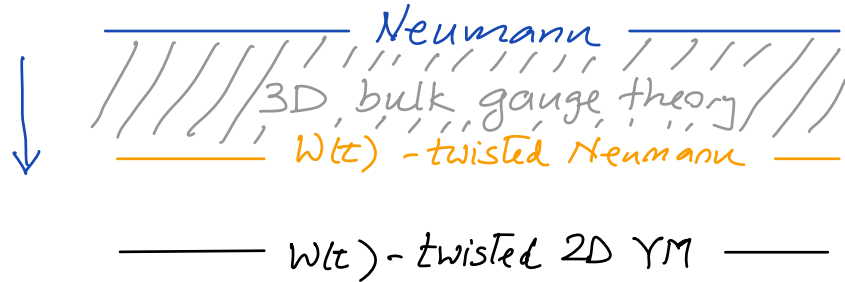 Neumann
3D bulk gauge theory
W(t) - twisted Neumann
W(t) - twisted 2D YM